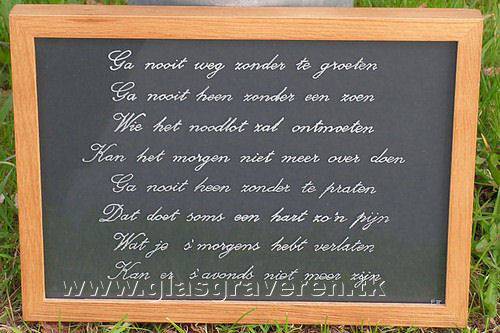 Ga nooit weg zonder te groeten
Ga nooit heen zonder een zoen
Wie het noodlot zal ontmoeten
Kan het morgen niet meer over doen
Ga nooit heen zonder te praten
Dat doet soms een hart zo'n pijn
Wat je s'morgens hebt verlaten
Kan er s'avonds niet meer zijn
www.glasgraveren.tk